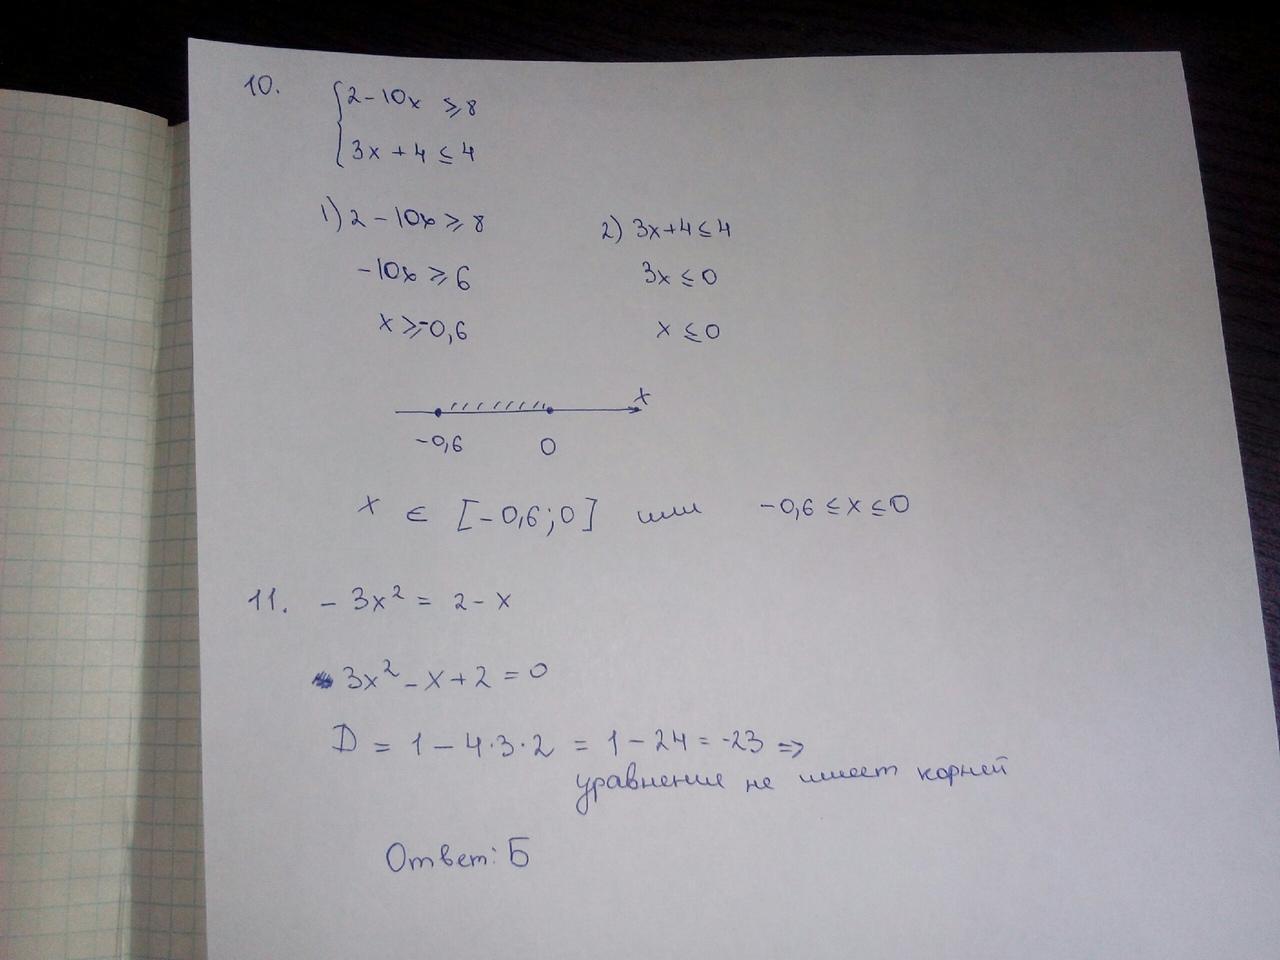 10. { 2 - 10x ⩾ 8
3x + 4 ≤ 4
1) 2 - 10x ⩾ 8
-10x ⩾ 6
x ⩾ -0,6
2) 3x + 4 ≤ 4
3x ≤ 0
x ≤ 0
x
-0,6 0
x ∈ [-0,6; 0] или -0,6 ≤ x ≤ 0
11. - 3x² = 2 - x
3x² - x + 2 = 0
D = 1 - 4·3·2 = 1 - 24 = -23 =>
уравнение не имеет корней
Ответ: Б